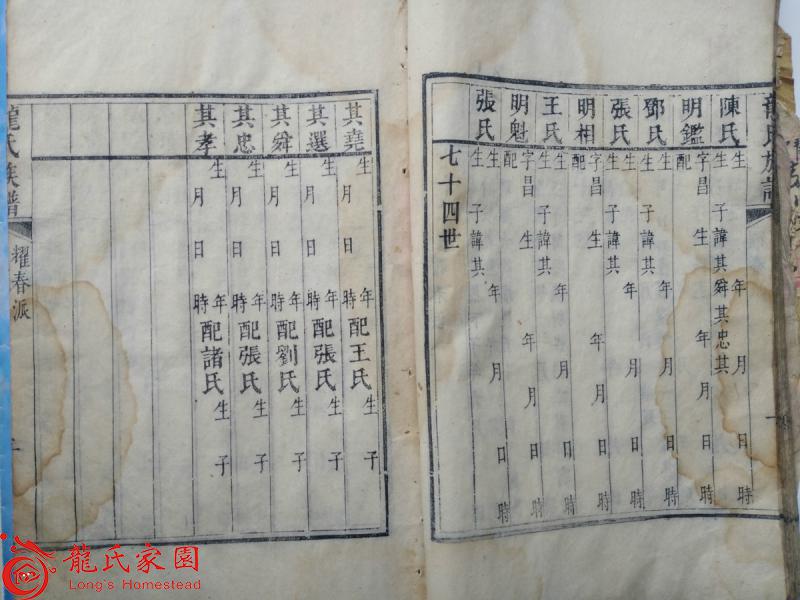 龍氏族譜
陳氏 生 年 月 日 時 生 子諱其舜其忠其
明鑑 字昌 生 年 月 日 時 配
鄧氏 生 年 月 日 時 生 子諱其
張氏 生 年 月 日 時 生 子諱其
明相 字昌 生 年 月 日 時 配
王氏 生 年 月 日 時 生 子諱其
明魁 字昌 生 年 月 日 時 配
張氏 生 年 月 日 時 生 子諱其
七十四世
其堯 生 年 月 日 時 配王氏 生 子
其選 生 年 月 日 時 配張氏 生 子
其舜 生 年 月 日 時 配劉氏 生 子
其忠 生 年 月 日 時 配張氏 生 子
其孝 生 年 月 日 時 配諸氏 生 子
龍氏族譜 耀春派
龍氏家園
Long's Homestead